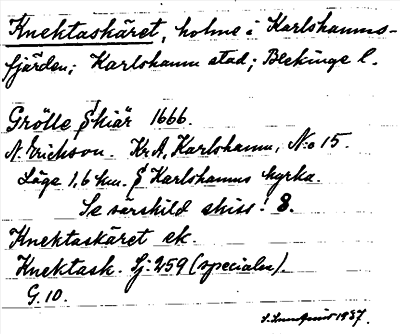 Knektaskäret, holme i Karlshamns-
fjärden; Karlshamn stad; Blekinge l.
Grötte Skiär 1666.
N. Erichson. Kr.A, Karlshamn, N:o 15.
Läge 1,6 km. S Karlshamns kyrka.
Se särskild skiss! 8.
Knektaskäret ek.
Knektask. Sj. 259 (specialn).
G. 10.
1937.